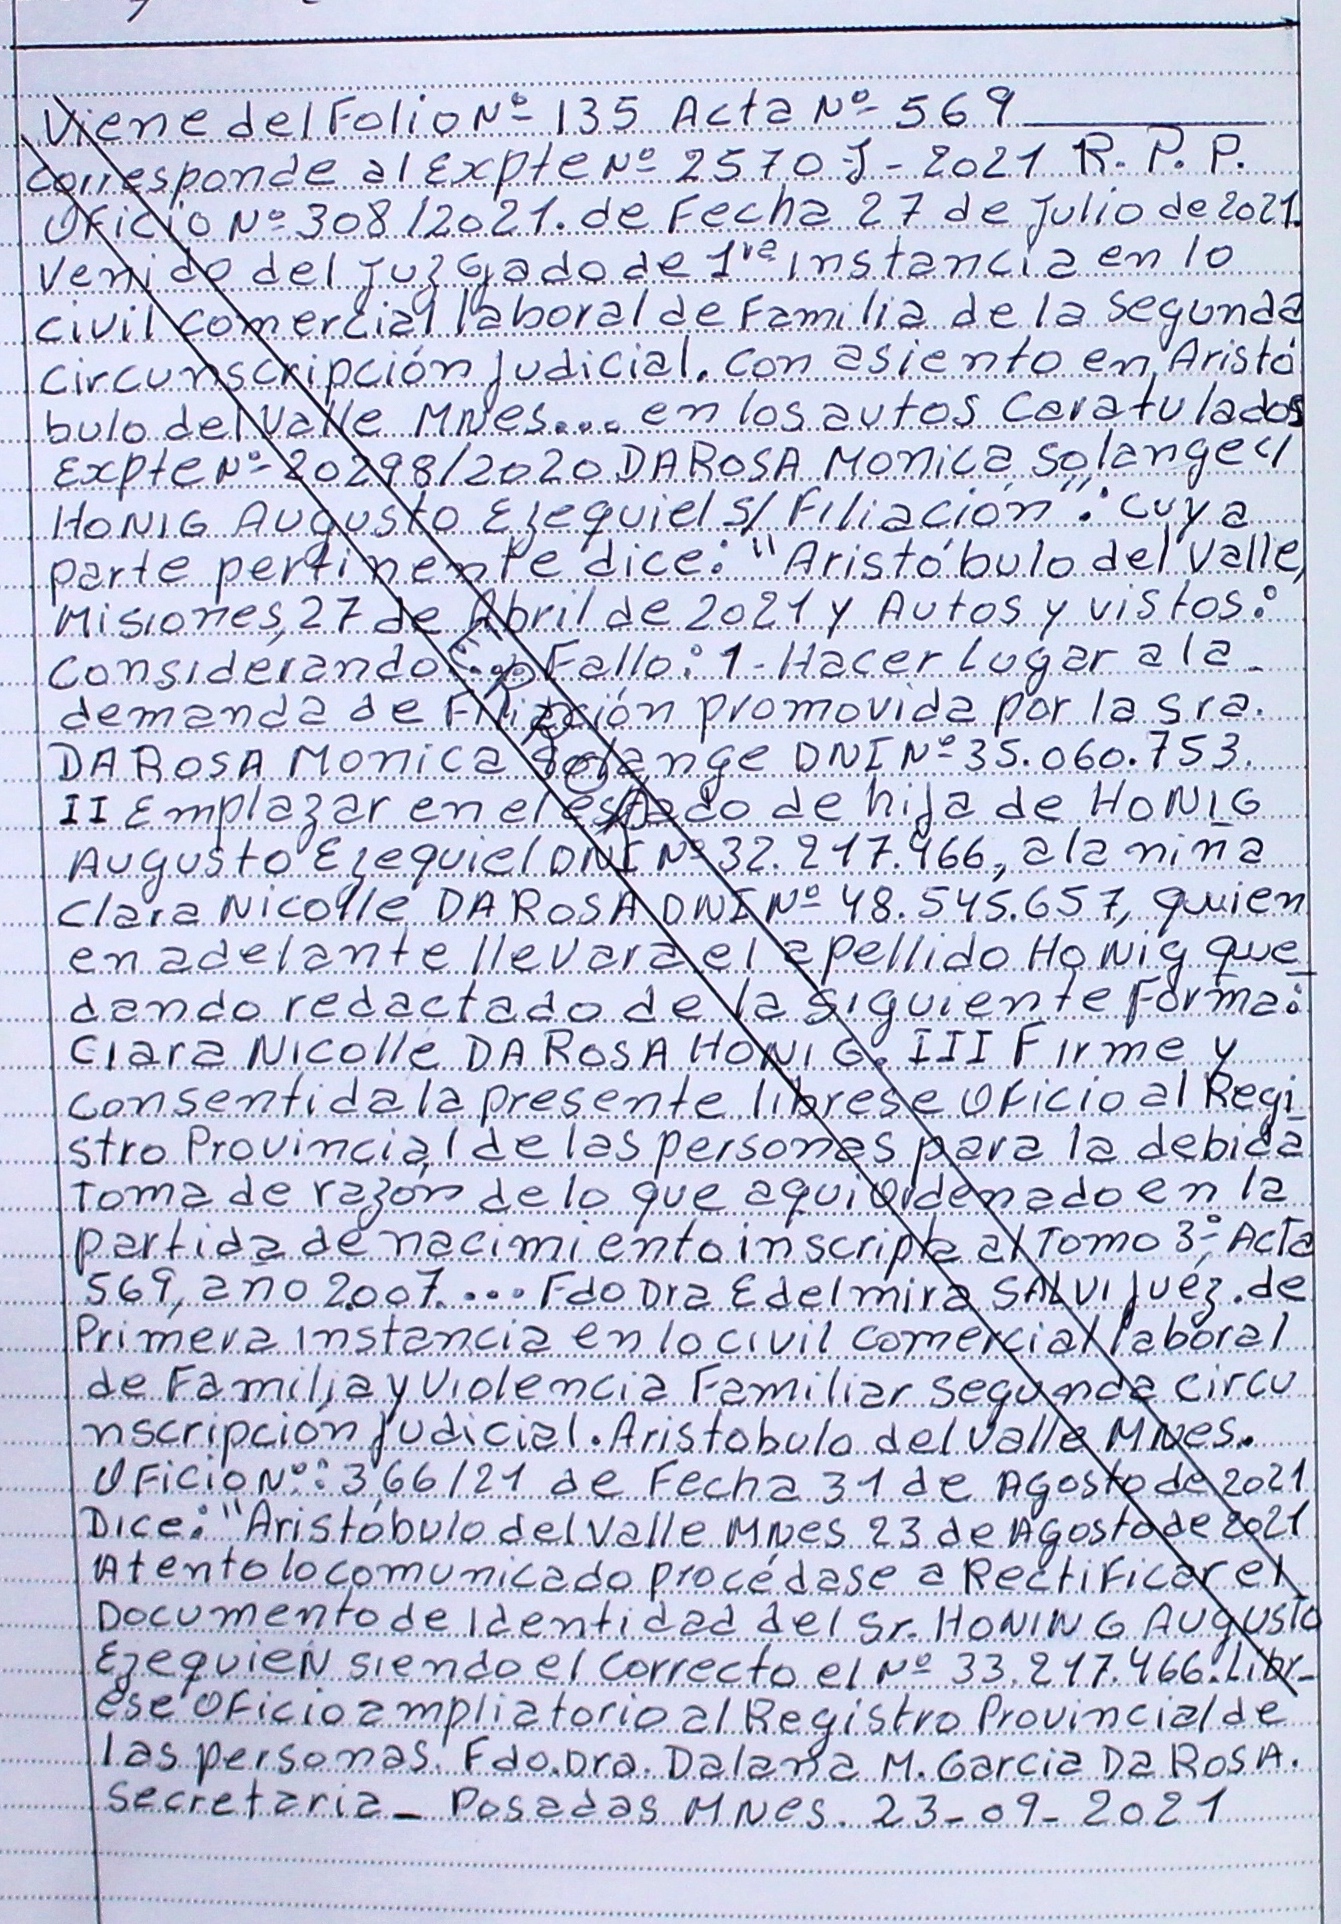 Viene del Folio Nº 135 Acta Nº 569
Corresponde al Expte Nº 2570-J-2021 R.P.P.
Oficio Nº 308/2021. de Fecha 27 de Julio de 2021.
Venido del Juzgado de 1ra instancia en lo
civil comercial laboral de Familia de la segunda
circunscripción judicial. con asiento en Aristó
bulo del Valle MNes.... en los autos Caratulados
Expte Nº 20298/2020 DA ROSA Monica Solange c/
HONIG Augusto Ezequiel s/ Filiación": cuya
parte pertinente dice: "Aristóbulo del Valle,
Misiones, 27 de Abril de 2021 y Autos y vistos:
Considerando... Fallo: 1- Hacer Lugar a la
demanda de Filiación promovida por la sra.
DA ROSA Monica Solange DNI Nº 35.060.753.
II Emplazar en el estado de hija de HONIG
Augusto Ezequiel DNI Nº 32.217.466, a la niña
Clara Nicolle DA ROSA DNI Nº 48.545.657, quien
en adelante llevara el apellido Honig que
dando redactado de la siguiente Forma:
Clara Nicolle DA ROSA HONIG. III Firme y
consentida la presente librese Oficio al Regi
stro Provincial de las personas para la debida
Toma de razón de lo que aqui ordenado en la
partida de nacimiento inscripta al Tomo 3º, Acta
569, año 2007.... Fdo Dra Edelmira SALVI Juéz. de
Primera instancia en lo civil comercial laboral
de Familia y Violencia Familiar segunda circu
nscripción judicial. Aristobulo del Valle MNes.
Oficio Nº: 366/21 de Fecha 31 de Agosto de 2021
Dice: "Aristóbulo del Valle MNes 23 de Agosto de 2021
Atento lo comunicado procédase a Rectificar el
Documento de Identidad del Sr. HONING Augusto
EzequieN siendo el correcto el Nº 33.217.466. Libr-
ese Oficio ampliatorio al Registro Provincial de
las personas. Fdo. Dra. Dalana M. Garcia Da ROSA.
Secretaria - Posadas MNes. 23-09-2021
ERROSE